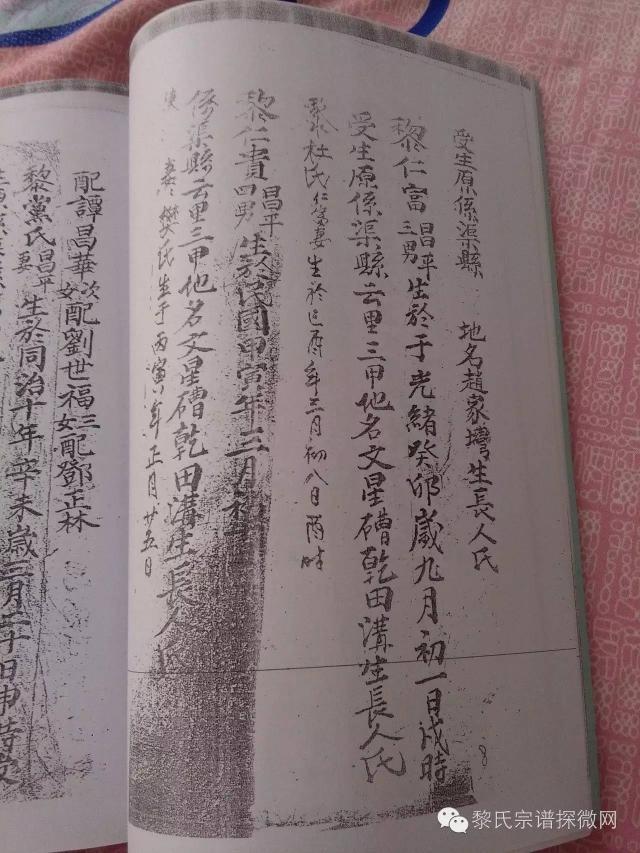 受生原係渠縣 地名趙家塆生長人氏
黎仁富 昌平三男 生於于光緒癸卯歲九月初一日戌時
受生原係渠縣云里三甲他名文星磄乾田溝生長人氏
黎杜氏 仁富妻 生於己酉年三月初八日酉時
黎仁貴 昌平四男 生於民國甲寅年三月初
係渠縣云里三甲他名文星磄乾田溝生長人氏
妻樊氏生于丙寅年正月廿五日
配譚昌華 次女配劉世福 三女配鄧正林
黎黨氏 昌平妻 生於同治十年辛未歲三月 日申時受
黎氏宗谱探微网